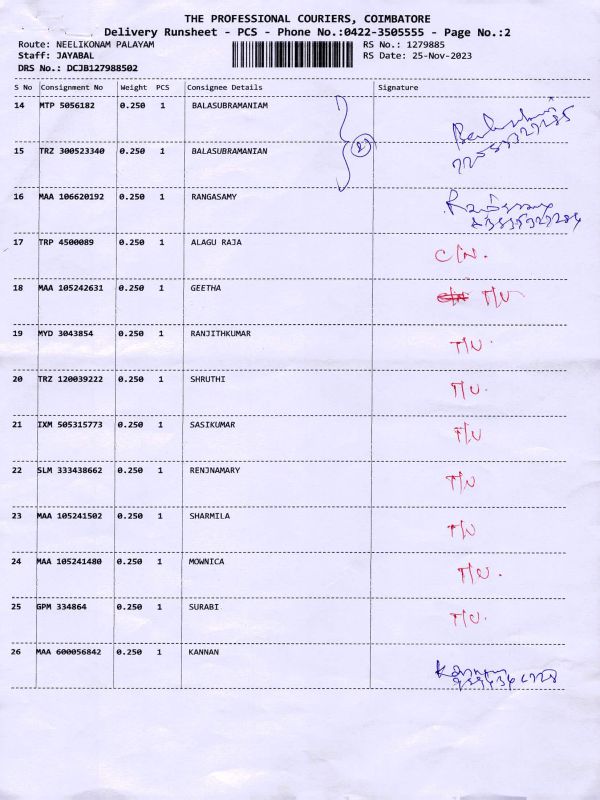 THE PROFESSIONAL COURIERS, COIMBATORE
Delivery Runsheet - PCS - Phone No.:0422-3505555 - Page No.:2
Route: NEELIKONAM PALAYAM RS No.: 1279885
Staff: JAYABAL RS Date: 25-Nov-2023
DRS No.: DCJB127988502
S No Consignment No Weight PCS Consignee Details Signature
14 MTP 5056182 0.250 1 BALASUBRAMANIAM
2
15 TRZ 300523340 0.250 1 BALASUBRAMANIAN
16 MAA 106620192 0.250 1 RANGASAMY
17 TRP 4500089 0.250 1 ALAGU RAJA C/N.
18 MAA 105242631 0.250 1 GEETHA C/N T/U
19 MYD 3043854 0.250 1 RANJITHKUMAR T/U.
20 TRZ 120039222 0.250 1 SHRUTHI T/U.
21 IXM 505315773 0.250 1 SASIKUMAR T/U
22 SLM 333438662 0.250 1 RENJNAMARY T/U
23 MAA 105241502 0.250 1 SHARMILA T/U
24 MAA 105241480 0.250 1 MOWNICA T/U.
25 GPM 334864 0.250 1 SURABI T/U.
26 MAA 600056842 0.250 1 KANNAN Kannan